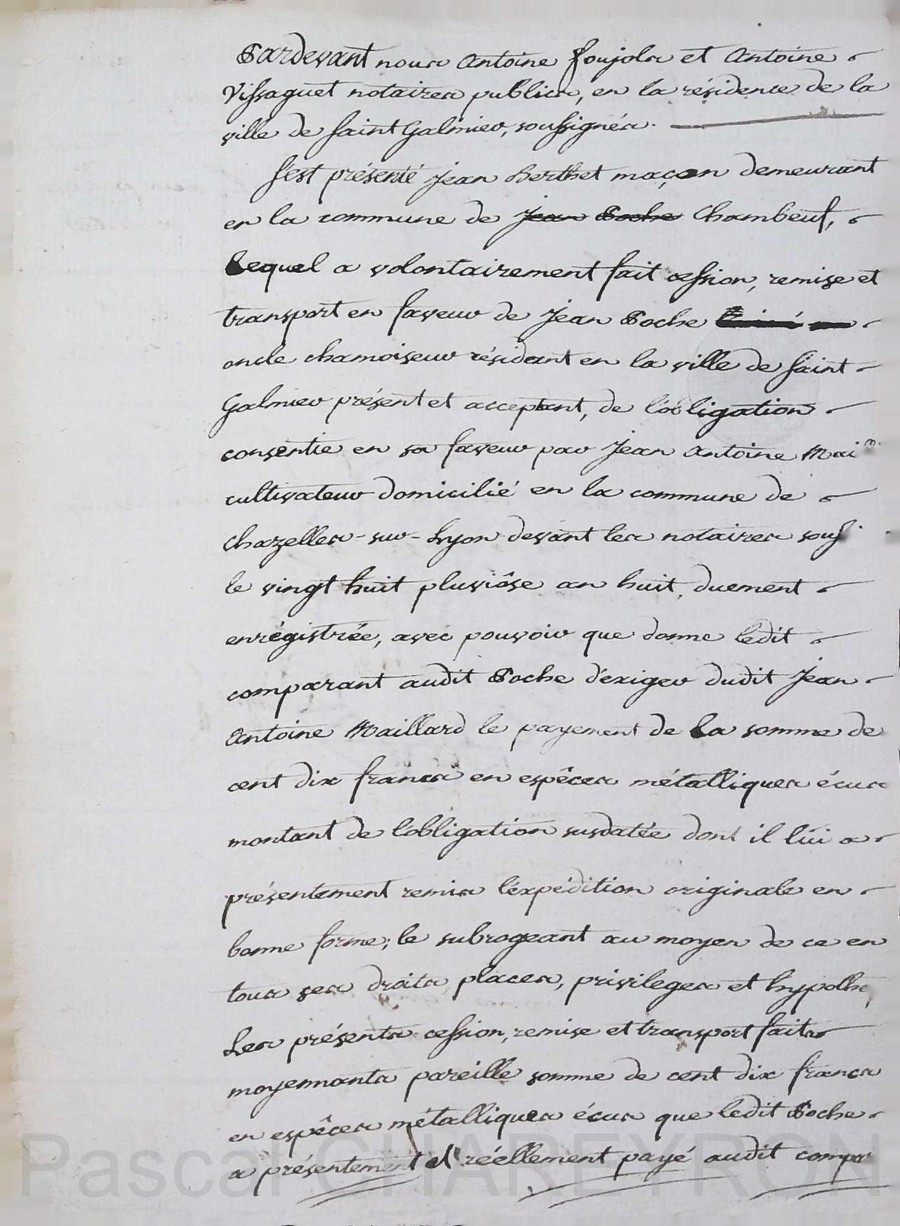 Pardevant nous Antoine Poujols et Antoine
Vissaguet notaires publics, en la résidence de la
ville de Saint Galmier, soussignés.
S'est présenté Jean Berthet maçon demeurant
en la commune de Jean Poche Chambeuf,
Lequel a volontairement fait cession, remise et
transport en faveur de Jean Poche
oncle chamoiseur résidant en la ville de Saint
Galmier présent et acceptant, de l'obligation
consentie en sa faveur par Jean Antoine Mai
cultivateur domicilié en la commune de
Chazelles-sur-Lyon devant les notaires sous
le vingt huit pluviôse an huit, duement
enrégistrée, avec pouvoir que donne ledit
comparant audit Poche d'exiger dudit Jean
Antoine Maillard le payement de La somme de
cent dix francs en espêces métalliques écus
montant de l'obligation susdatée dont il lui a
présentement remis l'expédition originale en
bonne forme; le subrogeant au moyen de ce en
tous ses droits places, privileges et hypothe
Les présents cession, remise et transport faits
moyennants pareille somme de cent dix francs
en espêces métalliques écus que ledit Poche
a présentement et réellement payé audit compar
Pascal CHAREYRON